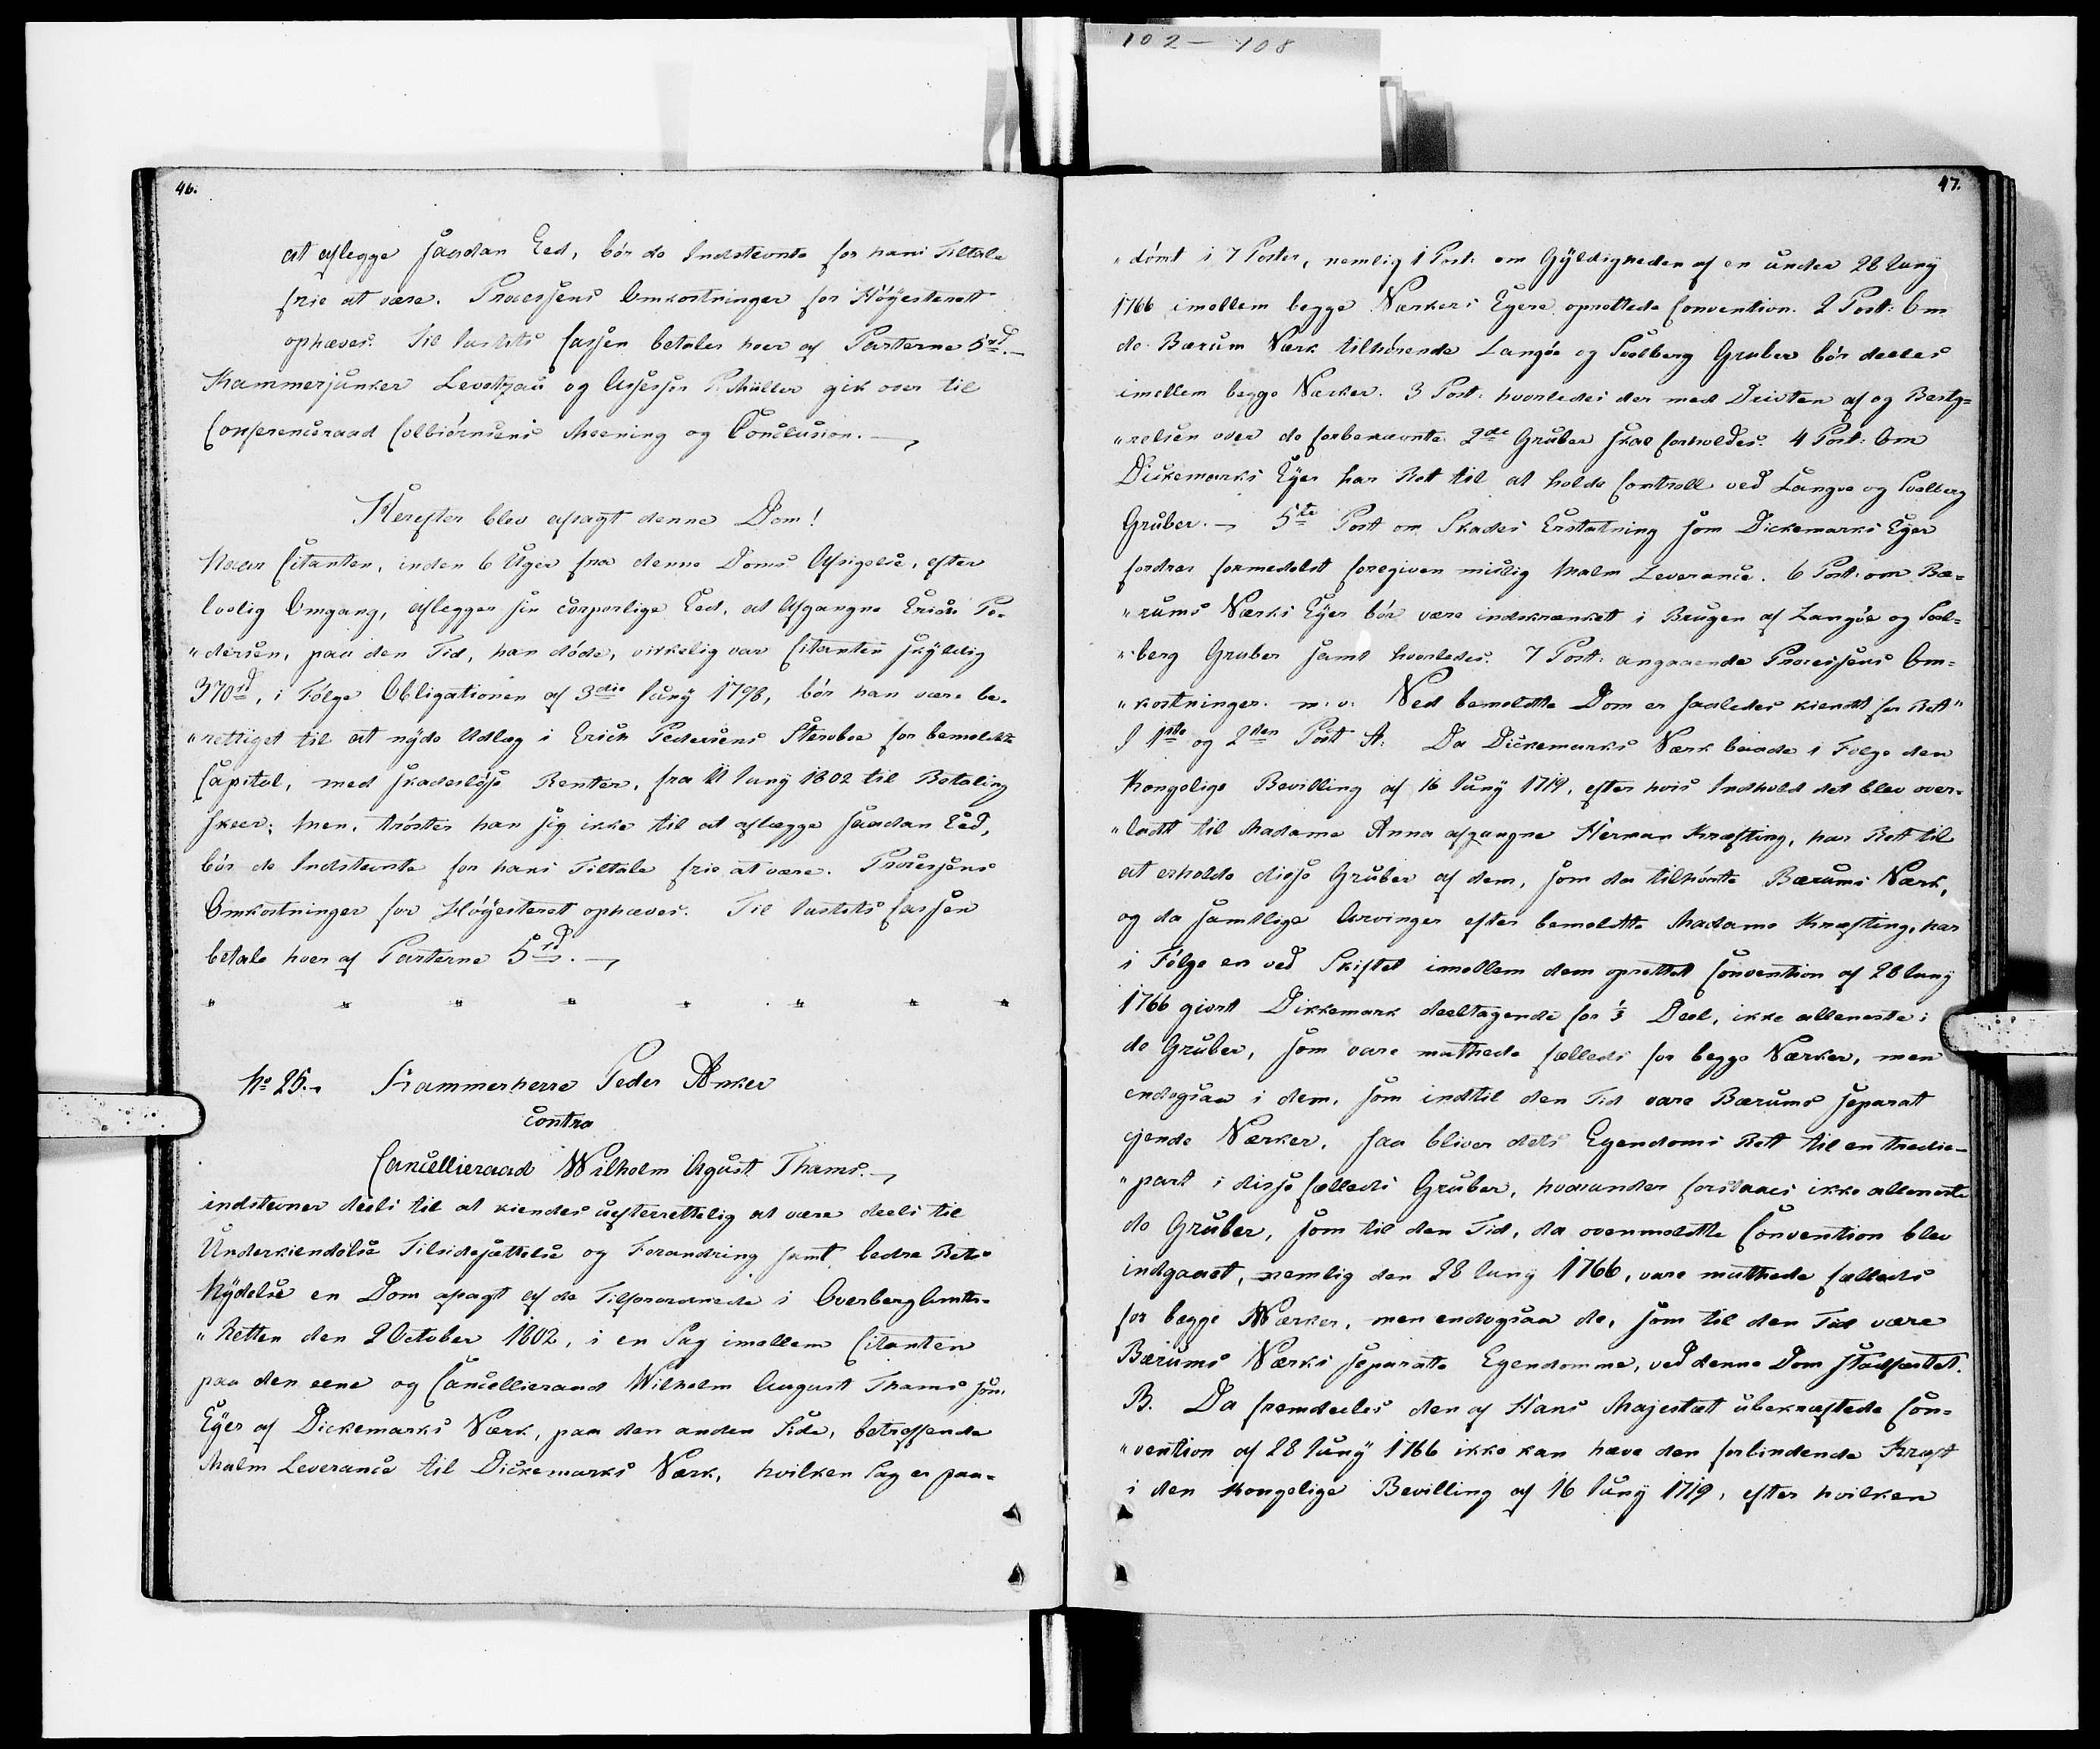 102 – 108
46.
at aflegge saadan Eed, bör de Indstevnte for hans Tiltale
frie at være. Processens Omkostninger for Höyesterett
ophæves. Til Justits Cassen betaler hver af Parterne 5 rd. –
Kammerjunker Levetzau og Assessor P. Müller gik over til
Conferenceraad Colbiörnsens Meening og Conclusion. –
Herefter blev afsagt denne Dom!
Naar Citanten, inden 6 Uger fra denne Doms Afsigelse, efter
lovlig Omgang, aflegger sin corporlige Eed, at Afgangne Erich Pe-
"dersen, paa den Tid, han döde, virkelig var Citanten skyldig
370 rd, i Fölge Obligationen af 3die Juny 1798, bör han være be-
"rettiget til at nyde Udlæg i Erich Pedersens Sterboe for bemeldte
Capital, med skadeslöse Renter, fra 11 Juny 1802 til Betaling
skeer; Men, tröster han sig ikke til at aflægge saadan Eed,
bör de Indstevnte for hans Tiltale frie at være. Processens
Omkostninger for Höyesteret ophæves. Til Justits Cassen
betale hver af Parterne 5 rd. –
" " " " " " " "
No 25. Kammerherre Peder Anker
contra
Cancellieraad Wilhelm Agust Thams. –
indstevner deels til at kiendes uefterrettelig at være deels til
Underkiendelse Tilsidesættelse og Forandring samt bedre Rets
Nydelse en Dom afsagt af de Tilforordnede i Overbergamts-
"Retten den 2 October 1802, i en Sag imellem Citanten
paa den eene og Cancellieraad Wilhelm August Thams som
Eyer af Dickemarks Værk, paa den anden Side, betreffende
Malm Leverance til Dickemarks Værk, hvilken Sag er paa-
47.
"dömt i 7 Poster, nemlig 1 Post: om Gyldigheden af en under 28 Juny
1766 imellem begge Værkers Eyere oprettede Convention. 2 Post: Om
de Bærum Værk tilhörende Langöe og Soelberg Gruber bör deeles
imellem begge Værker. 3 Post: hvorledes der med Drivten af og Besty-
"relsen over de forbenævnte 2de Gruber skal forholdes. 4 Post: Om
Dickemarks Eyer har Ret til at holde Controll ved Langöe og Soelberg
Gruber. – 5te Post om Skades Erstatning som Dickemarks Eyer
fordrer formedelst foregiven mislig Malm Leverance. 6 Post: om Bæ-
"rums Værks Eyer bör være indskrænket i Brugen af Langöe og Soel-
"berg Gruber samt hvorledes. 7 Post: angaaende Processens Om-
"kostninger. m: v: Ved bemeldte Dom er saaledes kiendt for Ret"
I 1ste og 2den Post A: Da Dickemarks Værk baade i Fölge den
Kongelige Bevilling af 16 Juny 1719, efter hvis Indhold det blev over-
"ladt til Madame Anna afgangne Herman Kræfting, har Ret til
at erholde disse Gruber af dem, som da tilhörte Bærums Værk,
og da samtlige Arvinger efter bemeldte Madame Kræfting, har
i Fölge en ved Skiftet imellem dem oprettet Convention af 28 Juny
1766 giort Dikkemark deeltagende for 1/3 Deel, ikke alleneste i
de Gruber, som vare muthede fælleds for begge Værker, men
endogsaa i dem, som indtil den Tid vare Bærums separatt
ejende Værker, saa bliver dets Egendoms Ret til en tredie-
"part i disse fælleds Gruber, hvorunder forstaaes ikke alleneste
de Gruber, som til den Tid, da ovenmeldte Convention blev
indgaaet, nemlig den 28 Juny 1766, vare muthede fælleds
for begge Værker, men endogsaa de, som til den Tid være
Bærums Værks separate Egendomme, ved denne Dom stadfæstet.
B. Da fremdeeles den af Hans Majestæt ubekræftede Con-
"vention af 28 Juny 1766 ikke kan hæve den forbindende Kraft
i den Kongelige Bevilling af 16 Juny 1719, efter hvilken